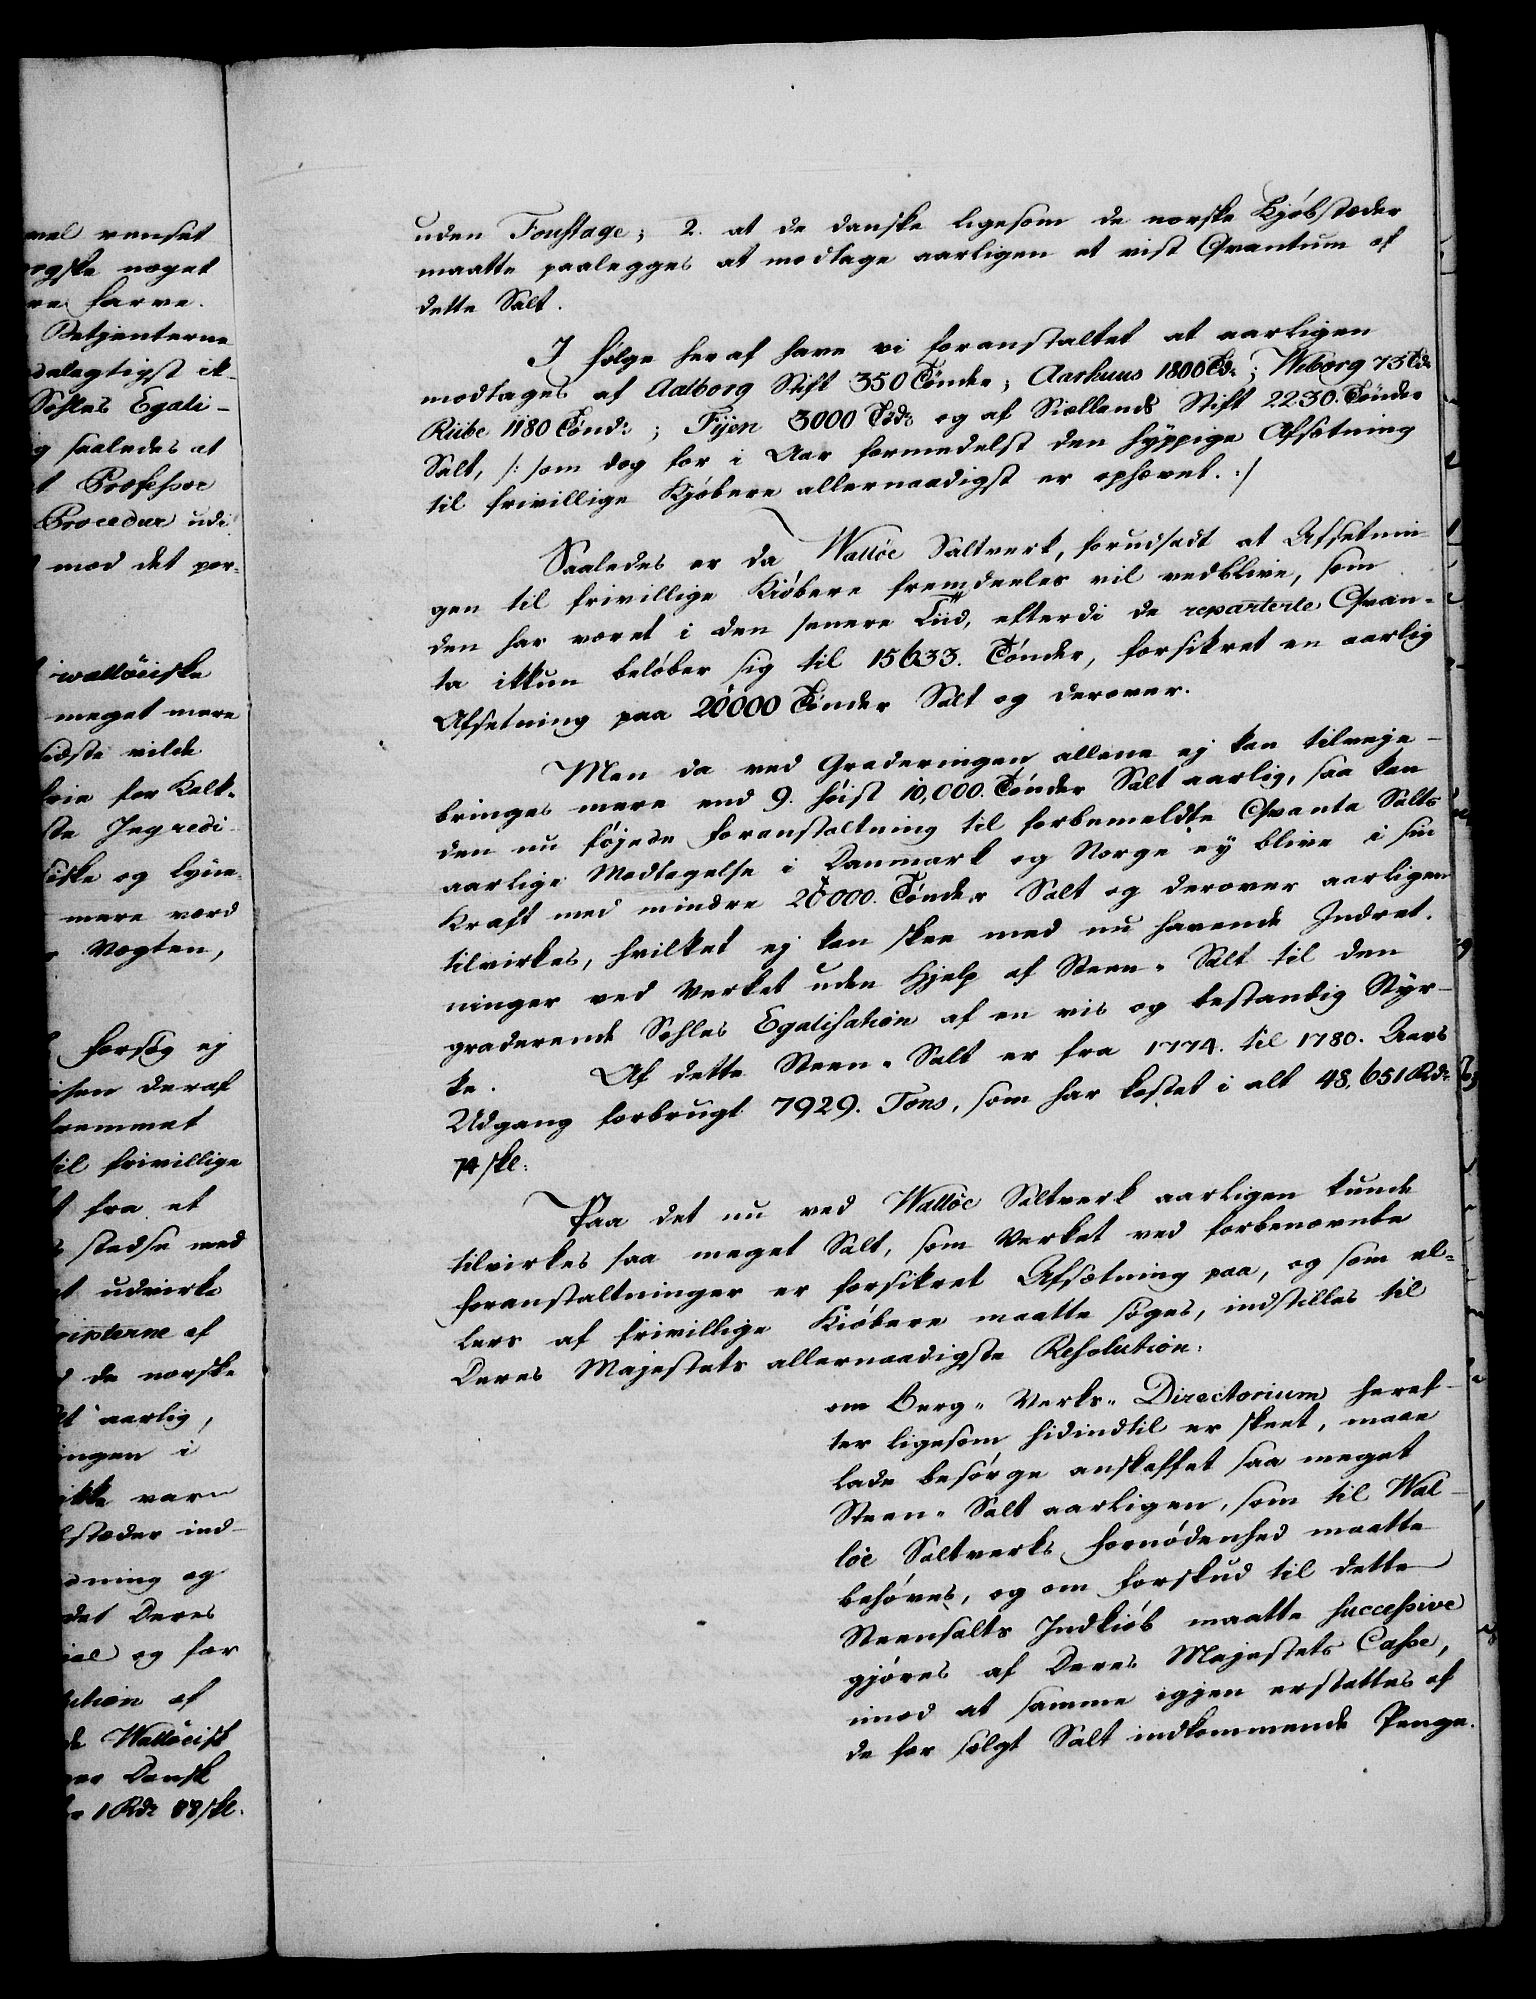 vel renset
orgske noget
re Farve.
Betjenterne
dalagtigst it-
Sohles Egali-
g saaledes at
t Professor
Procedur udi
mod det por-
wallöeiske
meget mere
sidste vilde
frie for Kalk-
ste Ingredi-
eiske og Lyne-
mere værd
Vægten,
Forsøg ej
isen deraf
fremmet
til frivillige
t fra et
stedse med
t udvirke
ripterne af
d de norske
et aarlig,
ingen i
ikke vare
lstæder ind-
dning og
det Deres
ial og for
lution af
de Wallöeisk
per Dansk
1 Rdr 88 skl.
uden Foustage; 2. at de danske ligesom de norske Kjöbstæder
maatte paalegges at modtage aarligen et vist Qvantum af
dette Salt.
I Følge heraf have vi foranstaltet at aarligen
modtages af Aalborg Stift 350 Tönder; Aarhuus 1800 Tdr; Wiborg 73 Tdr
Riibe 1180 Tönd:; Fyen 3000 Tdr og af Siællands Stift 2230. Tönder
Salt, /: som dog for i Aar formedelst den hyppige Afsætning
til frivillige Kjöbere allernaadigst er ophævet. :/
Saaledes er da Wallöe Saltverk, forudsadt at Afsetnin-
gen til frivillige Kiöbere fremdeeles vil vedblive, som
den har været i den senere Tiid, efterdi de reparterte Qvan-
ta ikkun belöber sig til 15633. Tönder, forsikret en aarlig
Afsetning paa 20000 Tönder Salt og derover.
Men da ved Graderingen allene ej kan tilveje-
bringes mere end 9. höist 10,000. Tönder Salt aarlig, saa kan
den nu föjede Foranstaltning til forbemeldte Qvanta Salts
aarlige Modtagelse i Danmark og Norge ej blive i sin
Kraft med mindre 20000. Tönder Salt og derover aarligen
tilvirkes, hvilket ej kan skee med nu havende Indret-
ninger ved Verket uden Hjelp af Steen-Salt til den
graderende Sohles Egalisation af en vis og bestandig Styr-
ke. Af dette Steen-Salt er fra 1774. til 1780. Aars
Udgang forbrugt 7929. Tons, som har kostet i alt 48,651 Rdr
74 skl:
Paa det nu ved Wallöe Saltverk aarligen kunde
tilvirkes saa meget Salt, som Verket ved forbenævnte
Foranstaltninger er forsikret Afsætning paa, og som el-
lers af frivillige Kiöbere maatte söges, indstilles til
Deres Majestets allernaadigste Resolution:
om Berg-Verks-Directorium heref-
ter ligesom hidindtil er skeet, maae
lade besörge anskaffet saa meget
Steen-Salt aarligen, som til Wal-
löe Saltverks Fornödenhed maatte
behöves, og om Forskud til dette
Steensalts Indkiöb maatte successive
gjöres af Deres Majestets Casse,
imod at samme igjen erstattes af
de for solgt Salt indkommende Penge.